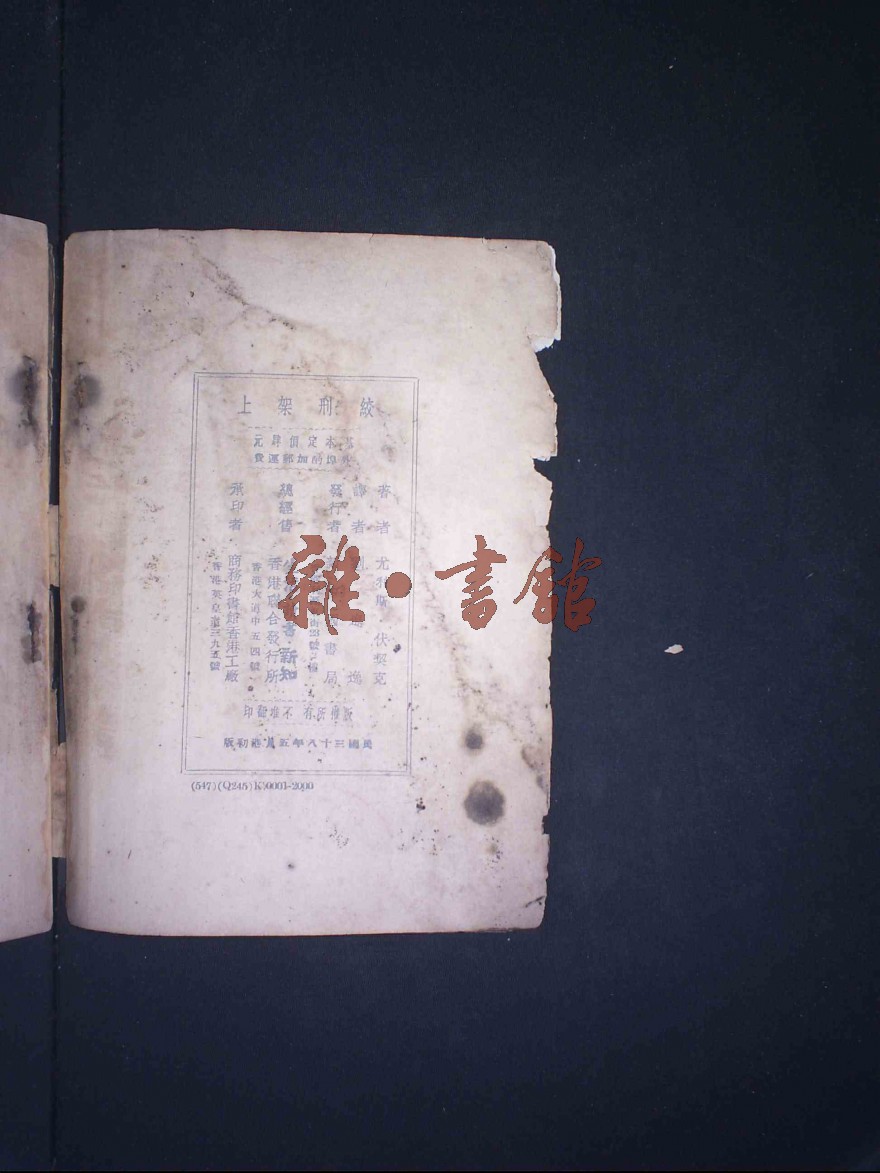 絞刑架上
基本定價肆元
外埠酌加郵運費
著者 尤利斯·伏契克
譯者 劉遼逸
發行者 書局
總經售 香港聯合發行所
香港大道中五四號
承印者 商務印書館香港工廠
香港英皇道三九五號
版權所有 不准翻印
民國三十八年五月港初版
(547)(Q245)K\0001-2000
新知
雜·書館